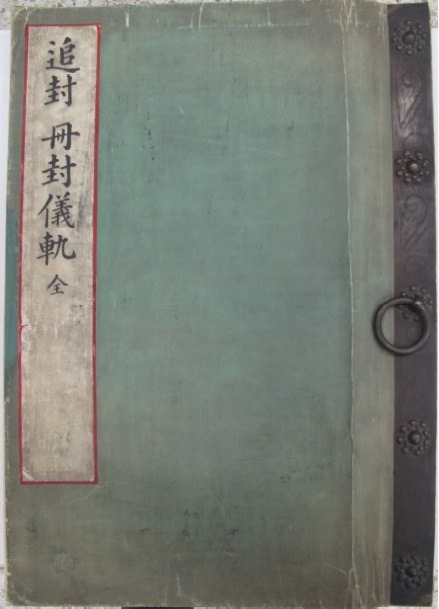 追封 冊封儀軌 全